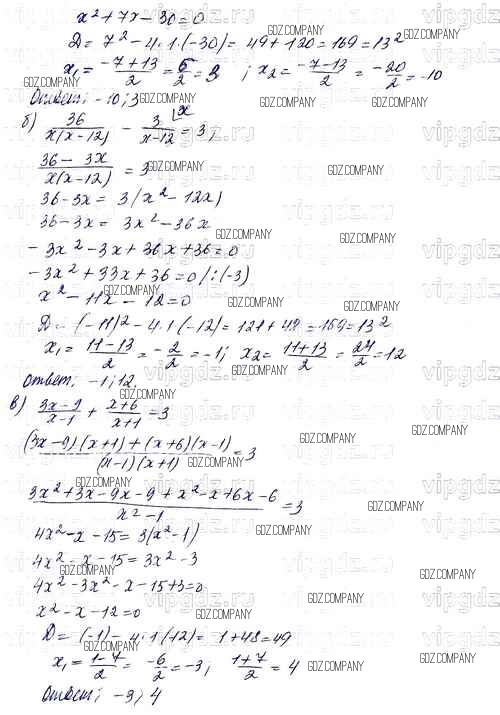 x² + 7x - 30 = 0
D = 7² - 4·1·(-30) = 49 + 120 = 169 = 13²
x₁ = (-7+13)/2 = 6/2 = 3 ; x₂ = (-7-13)/2 = -20/2 = -10
Ответ: -10; 3
б) 36/(x(x-12)) - 3/(x-12) |x = 3;
(36 - 3x)/(x(x-12)) = 3
36 - 3x = 3(x² - 12x)
36 - 3x = 3x² - 36x
-3x² - 3x + 36x + 36 = 0
-3x² + 33x + 36 = 0 /:(-3)
x² - 11x - 12 = 0
D = (-11)² - 4·1·(-12) = 121 + 48 = 169 = 13²
x₁ = (11-13)/2 = -2/2 = -1; x₂ = (11+13)/2 = 24/2 = 12
Ответ: -1; 12.
в) (3x-9)/(x-1) + (x+6)/(x+1) = 3
((3x-9)(x+1) + (x+6)(x-1))/((x-1)(x+1)) = 3
(3x² + 3x - 9x - 9 + x² - x + 6x - 6)/(x² - 1) = 3
4x² - x - 15 = 3(x² - 1)
4x² - x - 15 = 3x² - 3
4x² - 3x² - x - 15 + 3 = 0
x² - x - 12 = 0
D = (-1) - 4·1(12) = 1 + 48 = 49
x₁ = (1-7)/2 = -6/2 = -3; (1+7)/2 = 4
Ответ: -3; 4